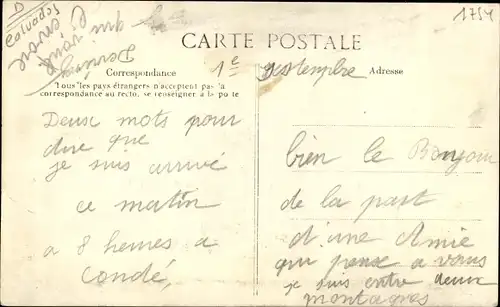 D
Calvados
1754
CARTE POSTALE
Correspondance
Adresse
Tous les pays étrangers n'acceptent pas la
correspondance au recto, se renseigner à la poste
1e septembre
Deux mots pour
dire que
je suis arrivé
ce matin
a 8 heures a
Condé,
bien le Bonjour
de la part
d'une Amie
qui pense a vous
je suis entre deux
montagnes